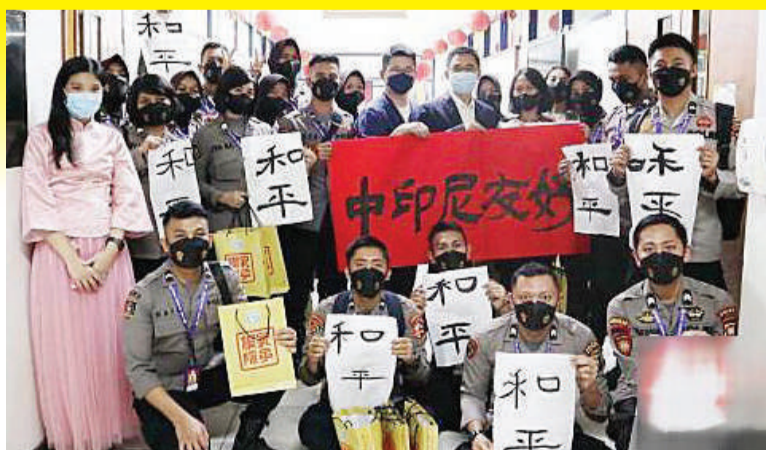 和平
和平
和平
中印尼友好
和平
和平
和平
和平
和平